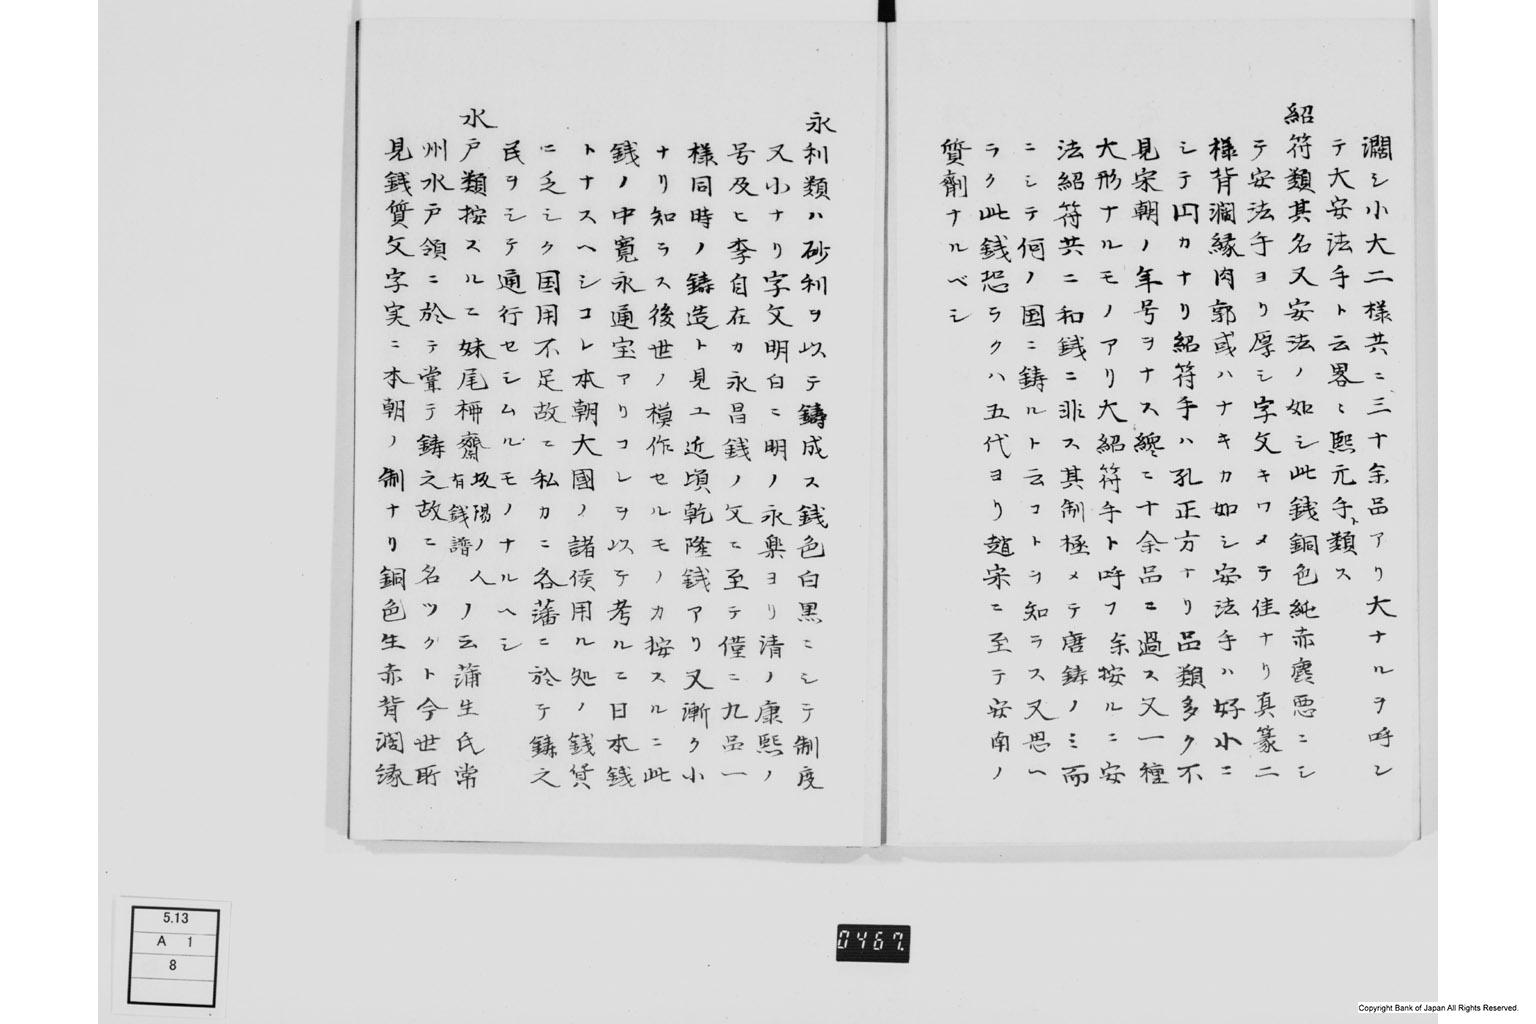 濶シ小大二様共ニ三十余品アリ大ナルヲ呼ン
テ大安法手ト云畧ミ熙元手ト類ス
紹符類其名又安法ノ如シ此銭銅色純赤麁悪ニシ
テ安法手ヨリ厚シ字文キワメテ佳ナリ真篆二
様背濶縁肉郭或ハナキカ如シ安法手ハ好小ニ
シテ円カナリ紹符手ハ孔正方ナリ品類多ク不
見宋朝ノ年号ヲナス纔ニ十余品ニ過ス又一種
大形ナルモノアリ大紹符手ト呼フ余按ルニ安
法紹符共ニ和銭ニ非ス其制極メテ唐鋳ノミ而
ニシテ何ノ国ニ鋳ルト云コトヲ知ラス又思ヘ
ラク此銭恐ラクハ五代ヨリ趙宋ニ至テ安南ノ
質劑ナルベシ
永利類ハ砂利ヲ以テ鋳成ス銭色白黒ニシテ制度
又小ナリ字文明白ニ明ノ永樂ヨリ清ノ康熙ノ
号及ヒ李自在カ永昌銭ノ文ニ至テ僅ニ九品一
様同時ノ鋳造ト見ユ近頃乾隆銭アリ又漸ク小
ナリ知ラス後世ノ模作セルモノカ按スルニ此
銭ノ中寛永通宝アリコレヲ以テ考ルニ日本銭
トナスヘシコレ本朝大國ノ諸侯用ル処ノ銭貨
ニ乏シク国用不足故ニ私カニ各藩ニ於テ鋳之
民ヲシテ通行セシムルモノナルヘシ
水戸類按スルニ妹尾柳齋坂陽ノ人有銭譜ノ云蒲生氏常
州水戸領ニ於テ甞テ鋳之故ニ名ツクト今世所
見銭質文字実ニ本朝ノ制ナリ銅色生赤背濶縁
5.13
A 1
8
0467.
Copyright Bank of Japan All Rights Reserved.